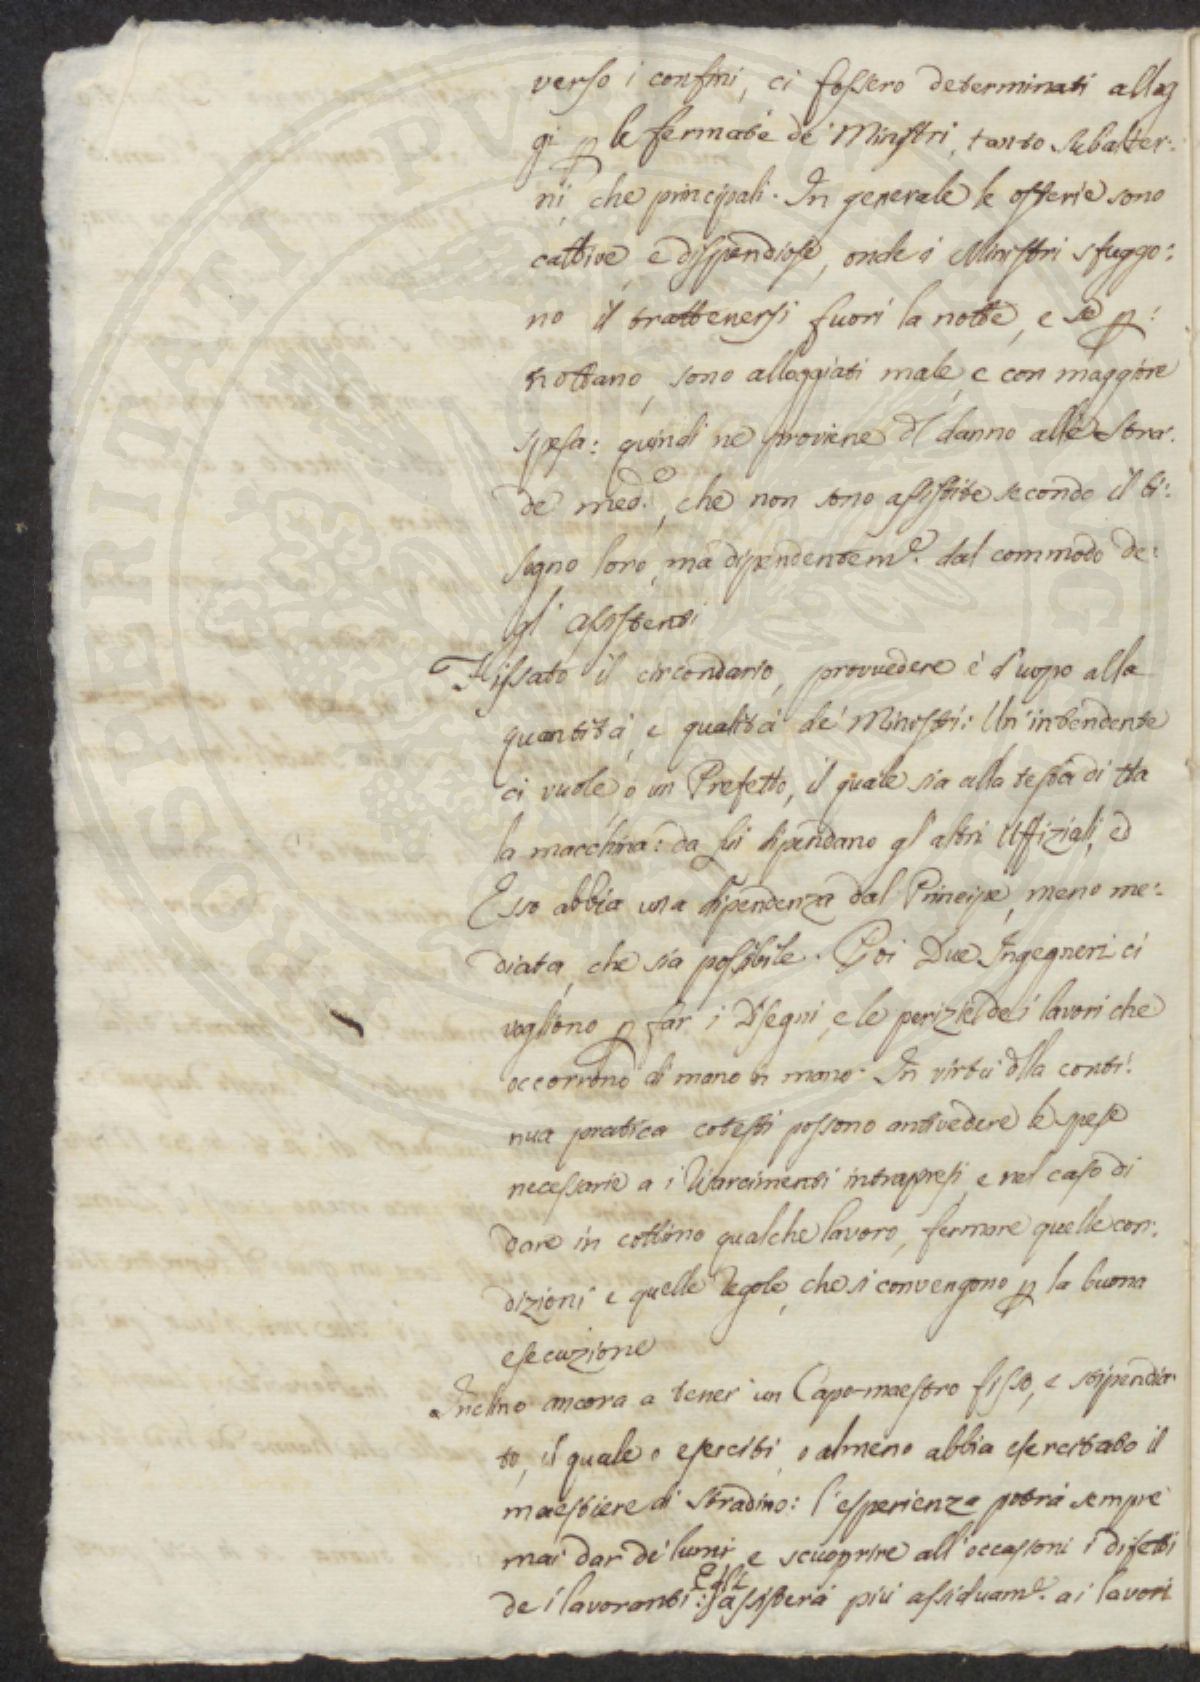 verso i confini, ci fossero determinati allog
gi p le fermate de' Ministri, tanto subalter:
ni, che principali. In generale le osterie sono
cattive, e dispendiose, onde i Ministri sfuggo:
no il trattenersi fuori la notte, e se p:
nottano, sono alloggiati male, e con maggiore
spesa: quindi ne proviene il danno alle stra:
de med.e, che non sono assistite secondo il bi:
sogno loro, ma dipendentem.e dal commodo de:
gl' Assistenti
Fissato il circondario, provvedere è d'uopo alla
quantità, e qualità de' Ministri: Un' intendente
ci vuole o un Prefetto, il quale sia alla testa di tta
la macchina: da lui dipendano gl' altri Uffiziali, ed
Esso abbia una dipendenza dal Principe, meno me:
diata, che sia possibile. Poi Due Ingegneri ci
vogliono p far i Disegni, e le perizie de i lavori che
occorrono di mano in mano. In virtù dlla conti:
nua pratica cotesti possono antivedere le spese
necessarie a i Risarcimenti intrapresi, e nel caso di
dare in cottimo qualche lavoro, fermare quelle con:
dizioni e quelle regole, che si convengono p la buona
esecuzione
Inclino ancora a tener un Capo-maestro fisso, e stipendia:
to, il quale o eserciti, o almeno abbia esercitato il
maestiere di stradino: l'esperienza potrà sempre
mai dar de' lumi, e scuoprire all'occasioni i difetti
de i lavoranti: Egli assisterà più assiduam.e ai lavori